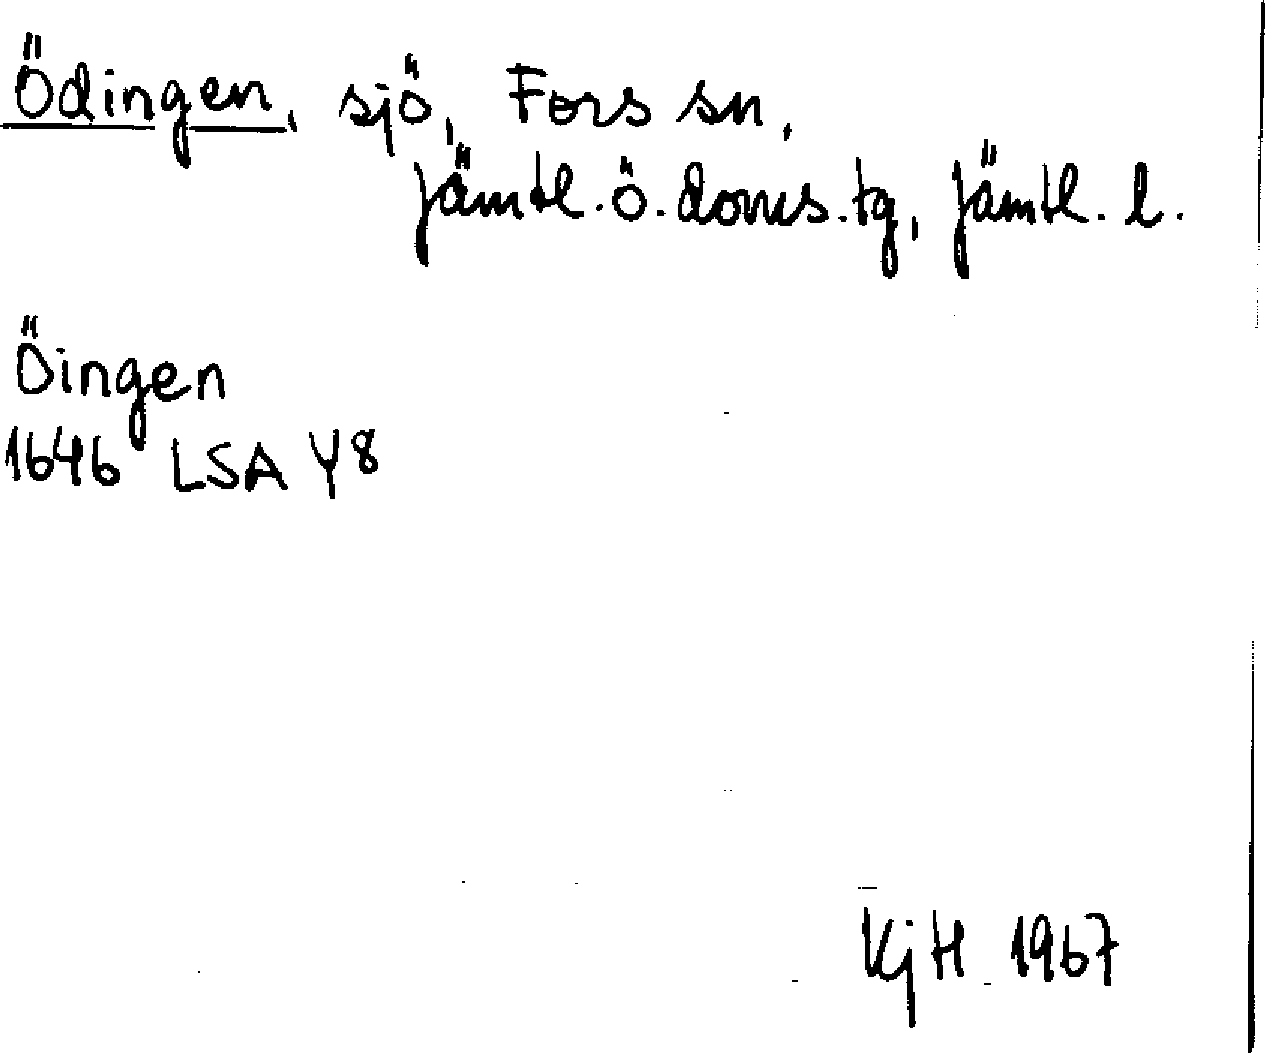 Ödingen, sjö, Fors sn,
Jämtl. ö. doms. tg, Jämtl. l.
Öingen
1646 LSA Y8
KjH 1967